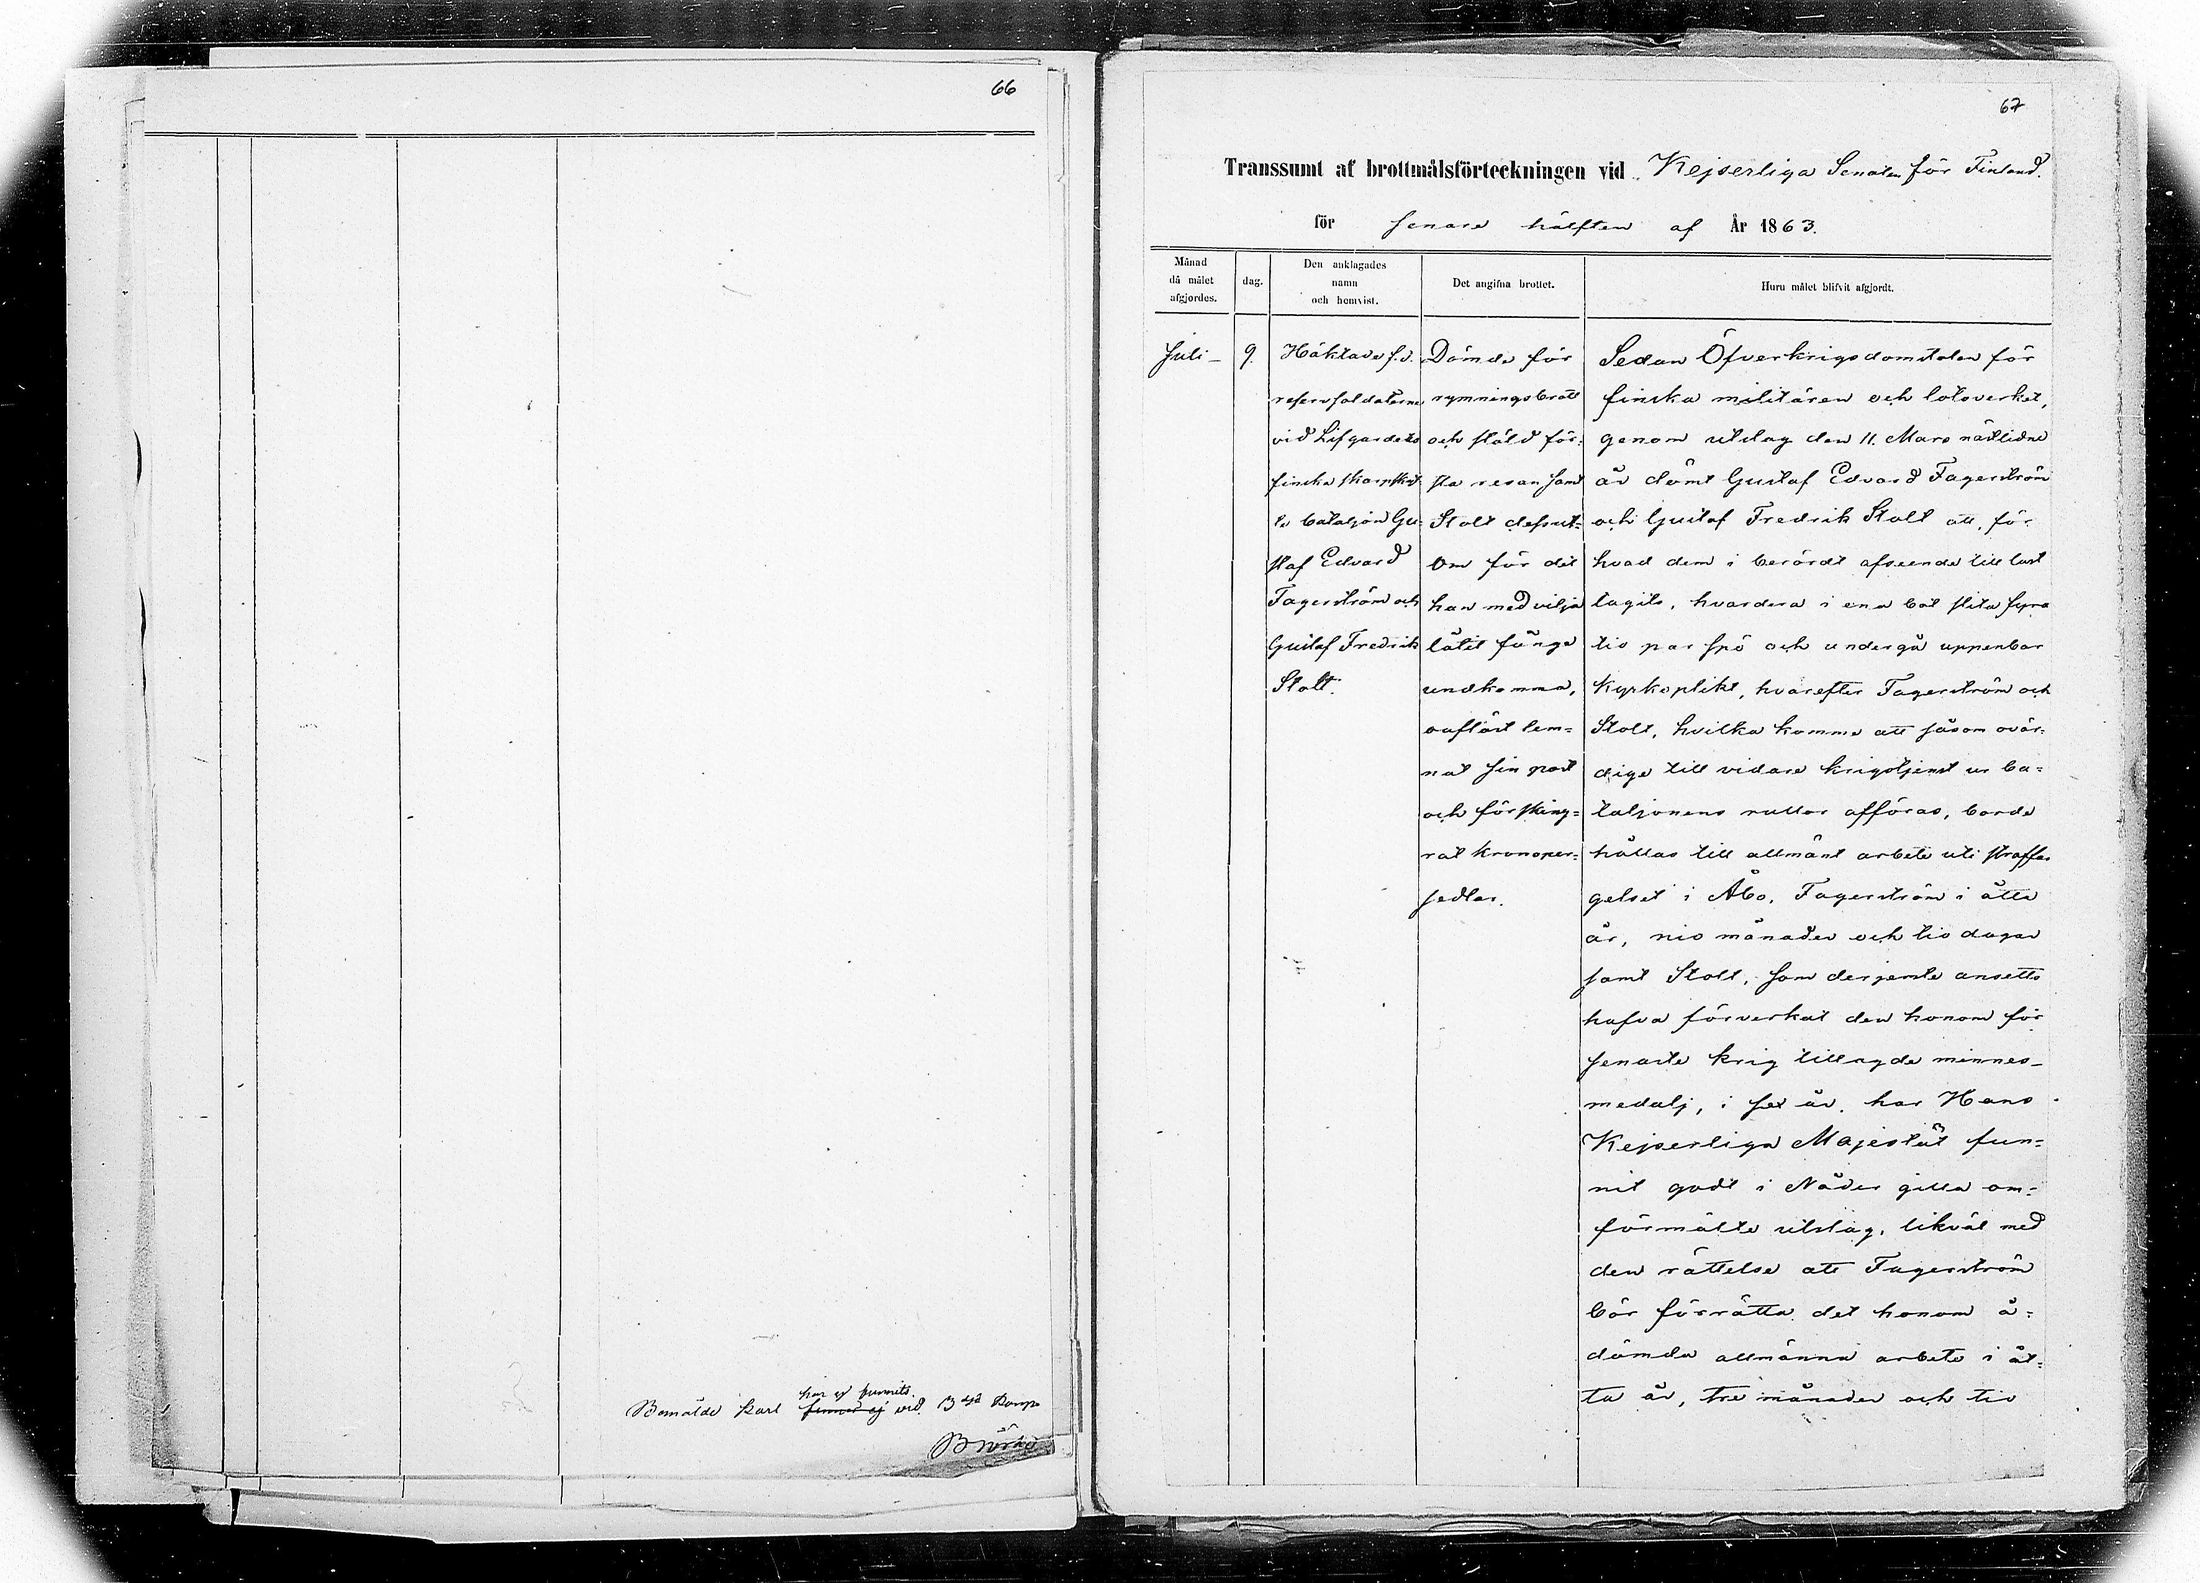 66
Bemälde Karl har ej funnits
finnes ej vid B dje Komp
67
Transsumt af brottmålsförteckningen vid Kejserliga Senaten för Finland.
för senare hälften af År 1863.
Månad
då målet
afgjordes.
dag.
Den anklagades
namn
och hemvist.
Det angifna brottet.
Huru målet blifvit afgjordt.
Juli
9.
Häktade f.d.
reservsoldaterne
vid Lifgardets
finska skarpskyt-
te bataljon Gu-
staf Edvard
Fagerström och
Gustaf Fredrik
Stolt.
Dömde för
rymningsbrott
och stöld för-
sta resan samt
Stolt dessut-
om för det
han med vilja
låtit fånge
undkomma,
oaflöst lem-
nat sin post
och försking-
rat kronoper-
sedlar.
Sedan Öfverkrigsdomstolen för
finska militären och lotsverket,
genom utslag den 11. Mars nästlidne
år dömt Gustaf Edvard Fagerström
och Gustaf Fredrik Stolt att, för
hvad dem i berördt afseende till last
lagits, hvardera i ena bot slita fyra
tio par spö och undergå uppenbar
kyrkoplikt, hvarefter Fagerström och
Stolt, hvilka komme att såsom ovär-
dige till vidare krigstjenst ur ba-
taljonens rullor afföras, borde
hållas till allmänt arbete uti straffän
gelset i Åbo, Fagerström i åtta
år, nio månader och tio dagar
samt Stolt, som derjemte ansetts
hafva förverkat den honom för
senaste krig tillagde minnes-
medalj, i sex år, har Hans
Kejserliga Majestät fun-
nit godt i Nåder gilla om-
förmälte utslag, likväl med
den rättelse att Fagerström
bör förrätta det honom å-
dömda allmänna arbete i åt-
ta år, tre månader och tio